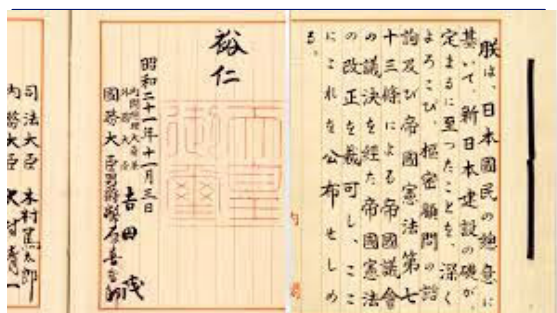 朕は、日本國民の總意に
基いて、新日本建設の礎が、
定まるに至つたことを、深く
よろこび、樞密顧問の諮
詢及び帝國憲法第七
十三條による帝國議會
の議決を経た帝國憲法
の改正を裁可し、ここ
にこれを公布せしめ
る。
裕仁
天皇御璽
昭和二十一年十一月三日
内閣總理大臣兼
外務大臣
吉田茂
國務大臣 男爵 幣原喜重郎
司法大臣 木村篤太郎
内務大臣 大村清一